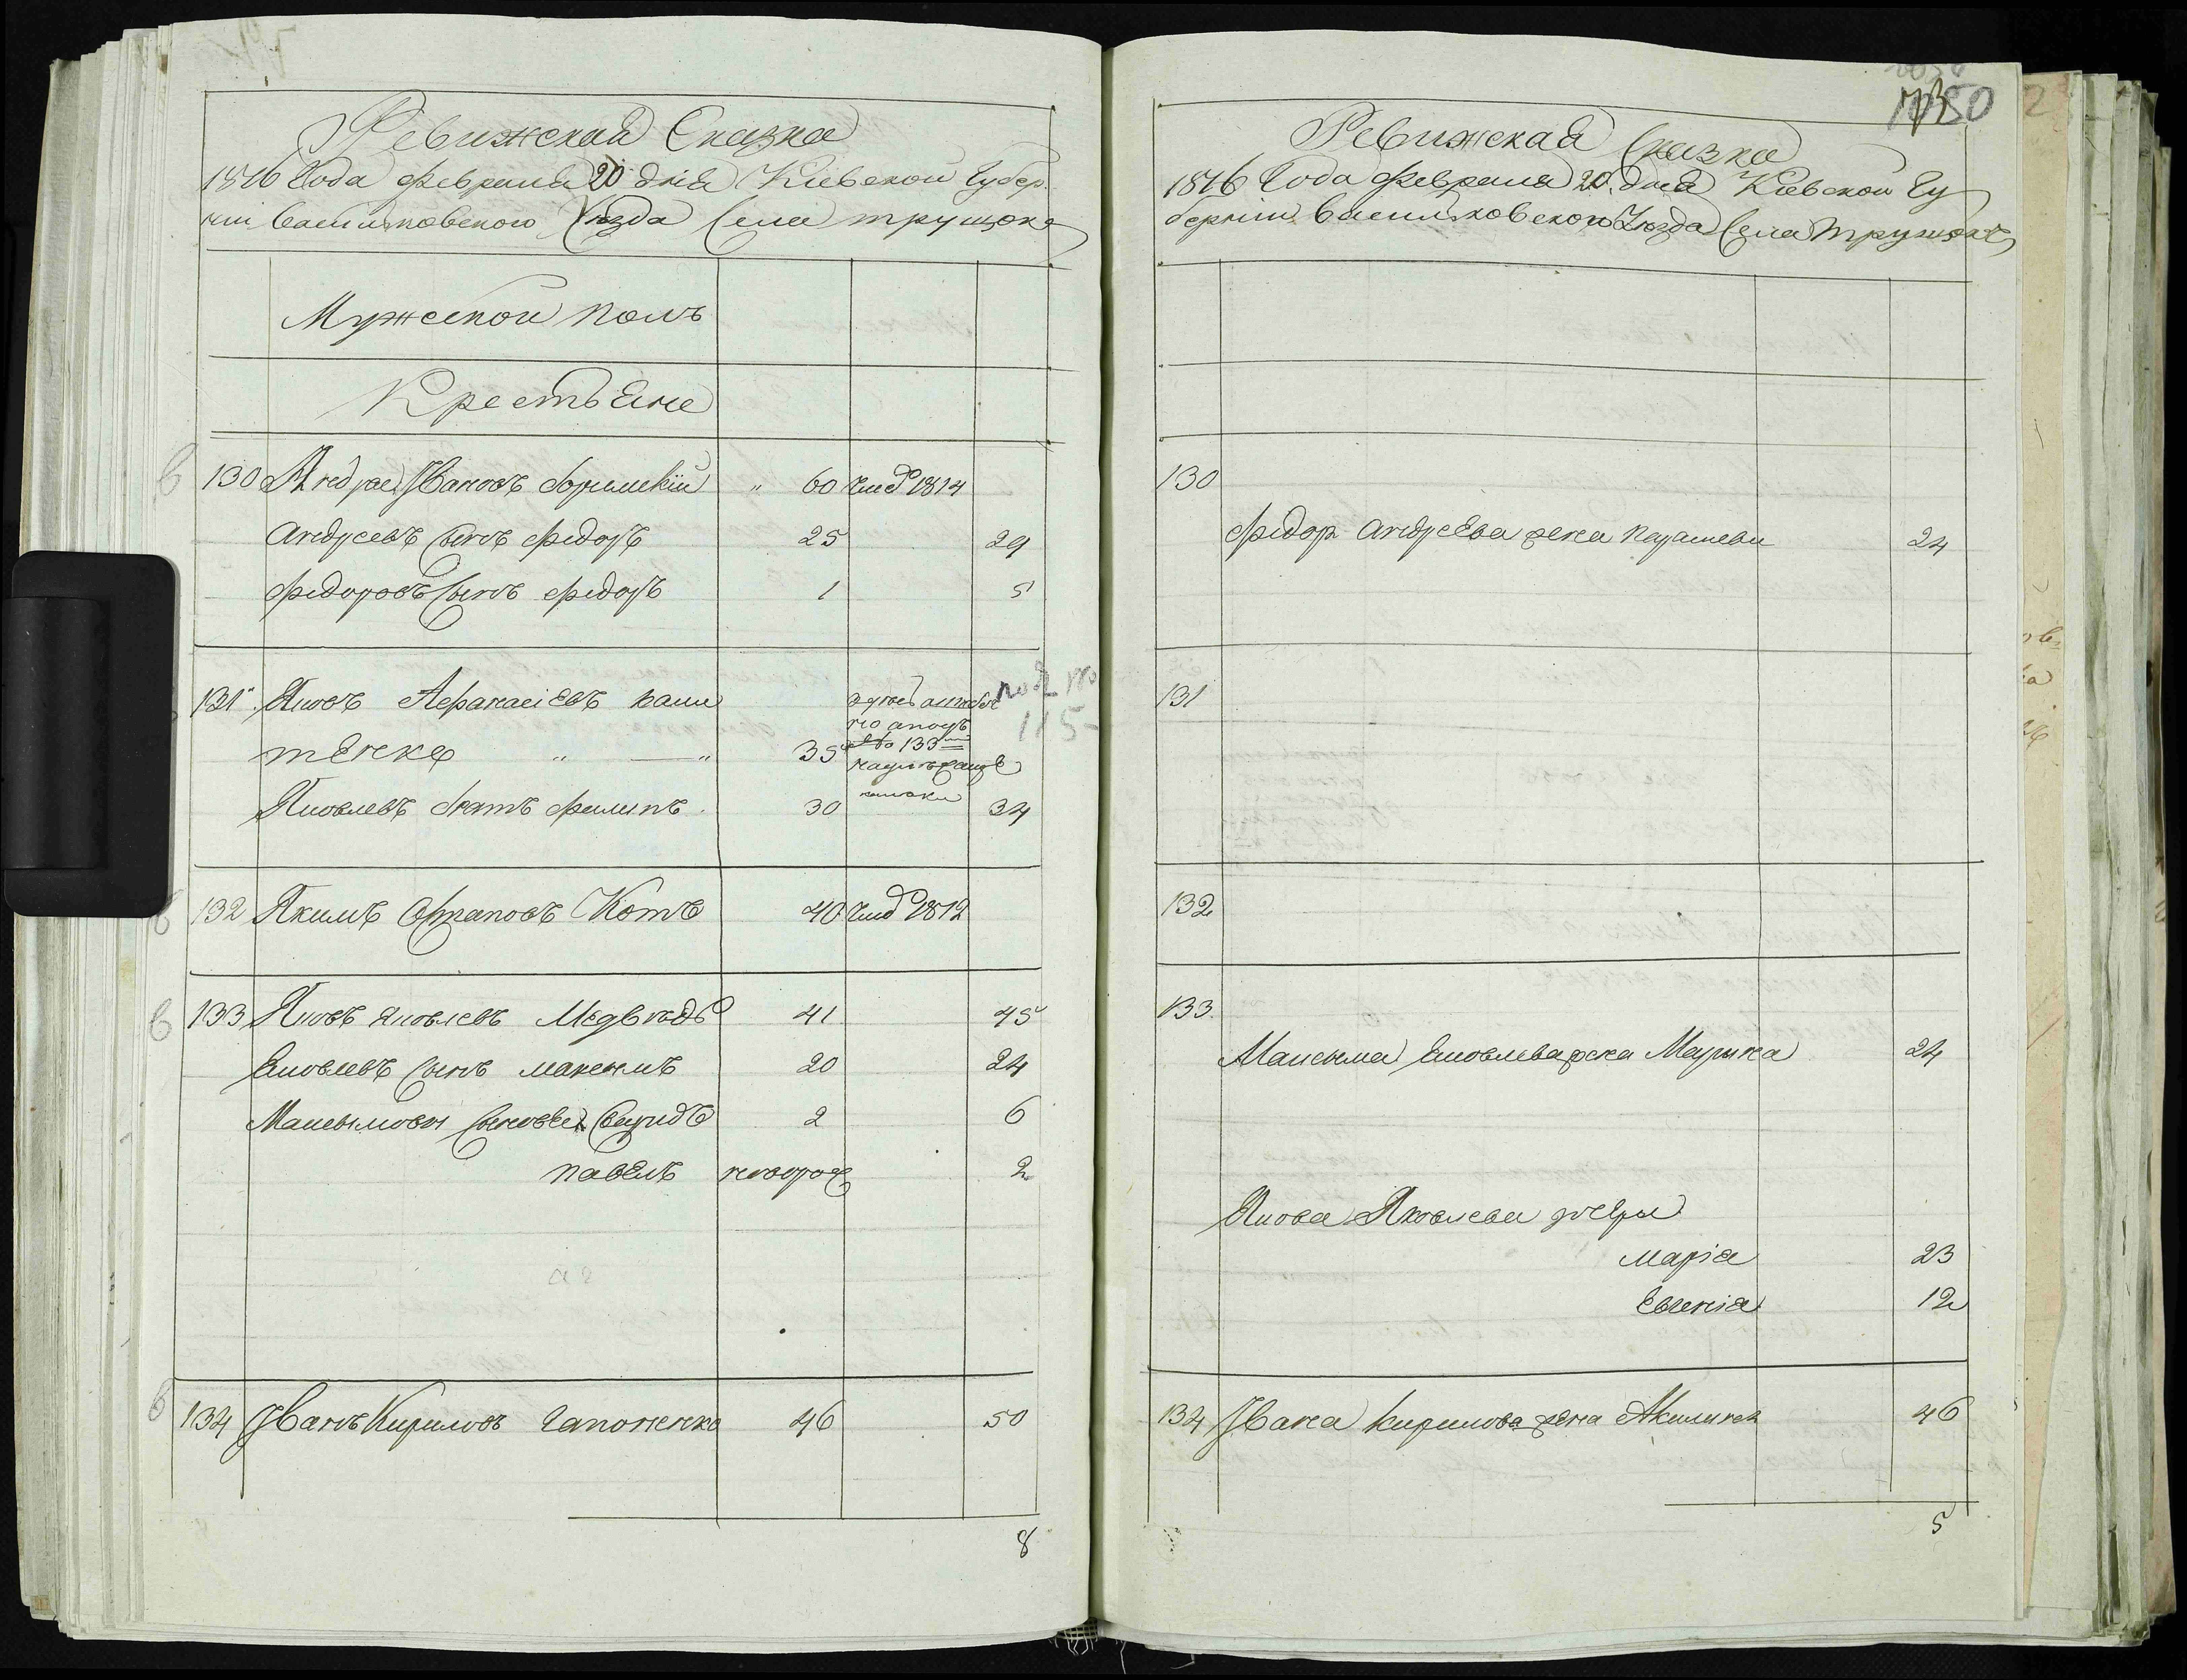 Ревижская Сказка
1816 Года февраля 20 дня Кіевской Губер
ніи Васильковского Уезда Села трущокъ
Мужеской полъ
Крестьяне
130 Андрей Ивановъ 60 умер 1814
Андреевъ сынъ федоръ 25 29
федоровъ сынъ федоръ 1 5
131 Яковъ Афанасіевъ каши
тенко 35
133
115
Яковлевъ братъ филипъ 30 34
132 Якимъ Остаповъ Котъ 40 умер 1812
133 Яковъ яковлевъ Медведь 41 45
Яковлевъ сынъ максимъ 20 24
Максимовы сыновья Свиридъ 2 6
павелъ новорож 2
134 Иванъ Кириловъ Гапоненко 46 50
8
1050
Ревижская Сказка
1816 Года февраля 20 дня Кіевской Гу
берніи Васильковского Уезда Села трущокъ
130
федора андреева жена параскева 24
131
132
133
Максима Яковлева жена Марина 24
Якова Яковлева дочери
марія 23
Евгенія 12
134 Ивана кирилова жена Акилина 46
5